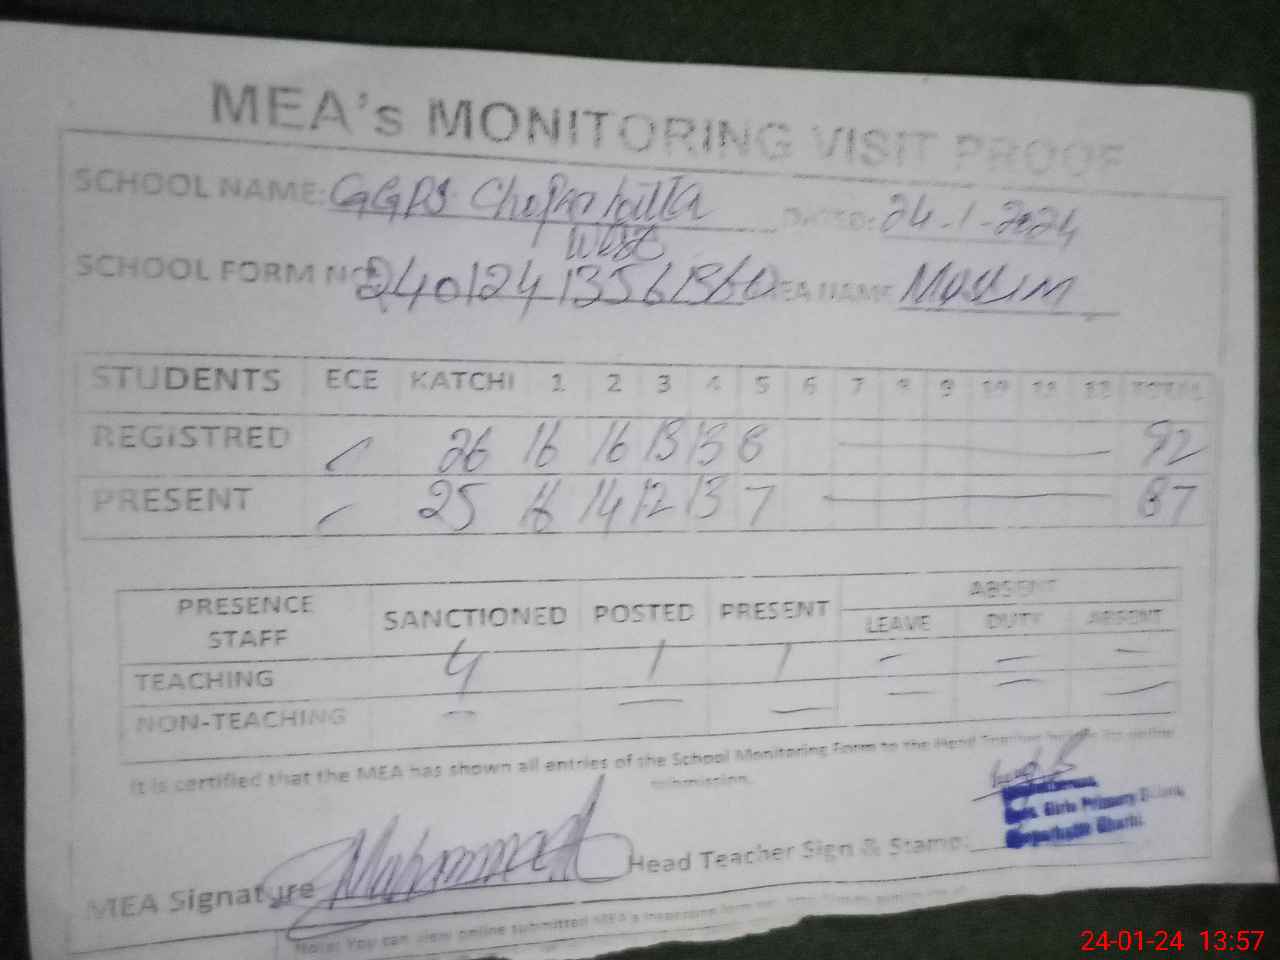 MEA's MONITORING VISIT PROOF
SCHOOL NAME: GGPS DATED: 24-1-2024
West
SCHOOL FORM NO 240124 13561360 MEA NAME
STUDENTS ECE KATCHI 1 2 3 4 5 6 7 8 9 10 11 12 TOTAL
REGISTRED - 26 16 16 13 13 8 92
PRESENT - 25 16 14 12 13 7 87
ABSENT
PRESENCE STAFF SANCTIONED POSTED PRESENT LEAVE DUTY ABSENT
TEACHING 4 1 1 - - -
NON-TEACHING - - - - - -
It is certified that the MEA has shown all entries of the School Monitoring Form to the Head Teacher before its online
submission.
Govt. Girls Primary
MEA Signature Muhammad Head Teacher Sign & Stamp:
Note: You can view online submitted MEA's
24-01-24 13:57